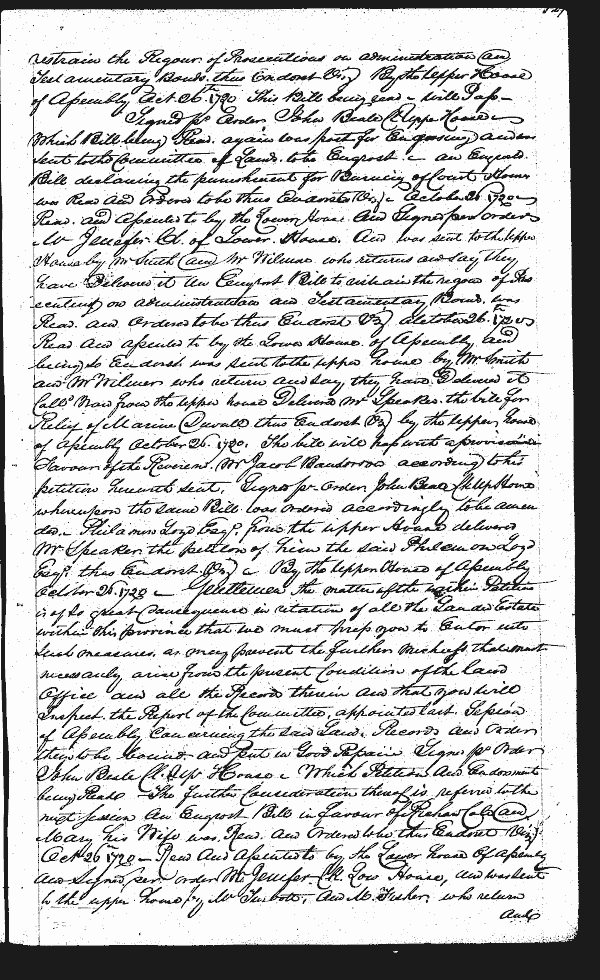 restrain the Rigour of Prosecutions on administration and
Testamentary Bonds. thus Endorst Viz By the Upper House
of Assembly Oct 26th 1720 This Bill being read - will Pass -
Signed pr Order John Beale Cl Uppr House
Which Bill being Read. again was past for Engrossing and was
sent to the Committee of Laws. to be Engrost. - an Engrost
Bill declaring the punishment for Burning of Court Houses
was Read and Ordered to be thus Endorst Viz October 26 1720
Read. and Assented to by the Lower House And Signed per Order
Mr Jenefer Cl. of Lower. House. And was sent to the Upper
House by Mr Smith and Mr Wilmer. who returns and say they
have Delivered it An Engrost Bill to restrain the rigour of Pro
secutions on administration and Testamentary Bonds. was
Read. and Ordered to be thus Endorst Viz October 26th 1720
Read And assented to by the Lower House of Assembly and
being so Endorst was sent to the upper house by Mr Smith
and Mr Wilmer who return and say they have Delivered it
Coll Ward from the Upper house Delivers Mr Speaker. the bill for
Relief of Duvall thus Endorst Viz by the Upper house
of Assembly October 26. 1720. The bill will pass with a provision in
Favour of the Reverend Mr Jacob according to his
petition herewith sent. Signed pr Order John Beale Cl Up House
whereupon the same Bill was Ordered accordingly to be amen
ded. - Philemon Loyd Esqr. from the upper House delivered
Mr Speaker the petition of him the said Philemon Loyd
Esqr. thus Endorst Viz By the Upper House of Assembly
October 26. 1720 - Gentlemen the matter of the within Petition
is of so great Consequence in relation of all the Landed Estate
within this province that we must press you to Enter into
such measures, as may prevent the further mischiefs that must
necessarily arise from the present Condition of the land
Office and all the Records therein and that you will
Inspect. the Report of the Committee, appointed last. Session
of Assembly Concerning the said Land. Records and Order
them to be bound and put in Good Repair Signed pr Order
John Beale Cl. Upr House - Which Petition And Endorsment
being Read - The further Consideration thereof is referred to the
next session An Engrost Bill in favour of and
Mary his Wife was Read. and Ordered to be thus Endorst Viz
Octr 26th 1720 - Read And Assented to by the Lower house Of Assembly
and Signed per order Mr Jenefer Cl. Low House, and was sent
to the upper house by Mr and M. Fisher. who return
and